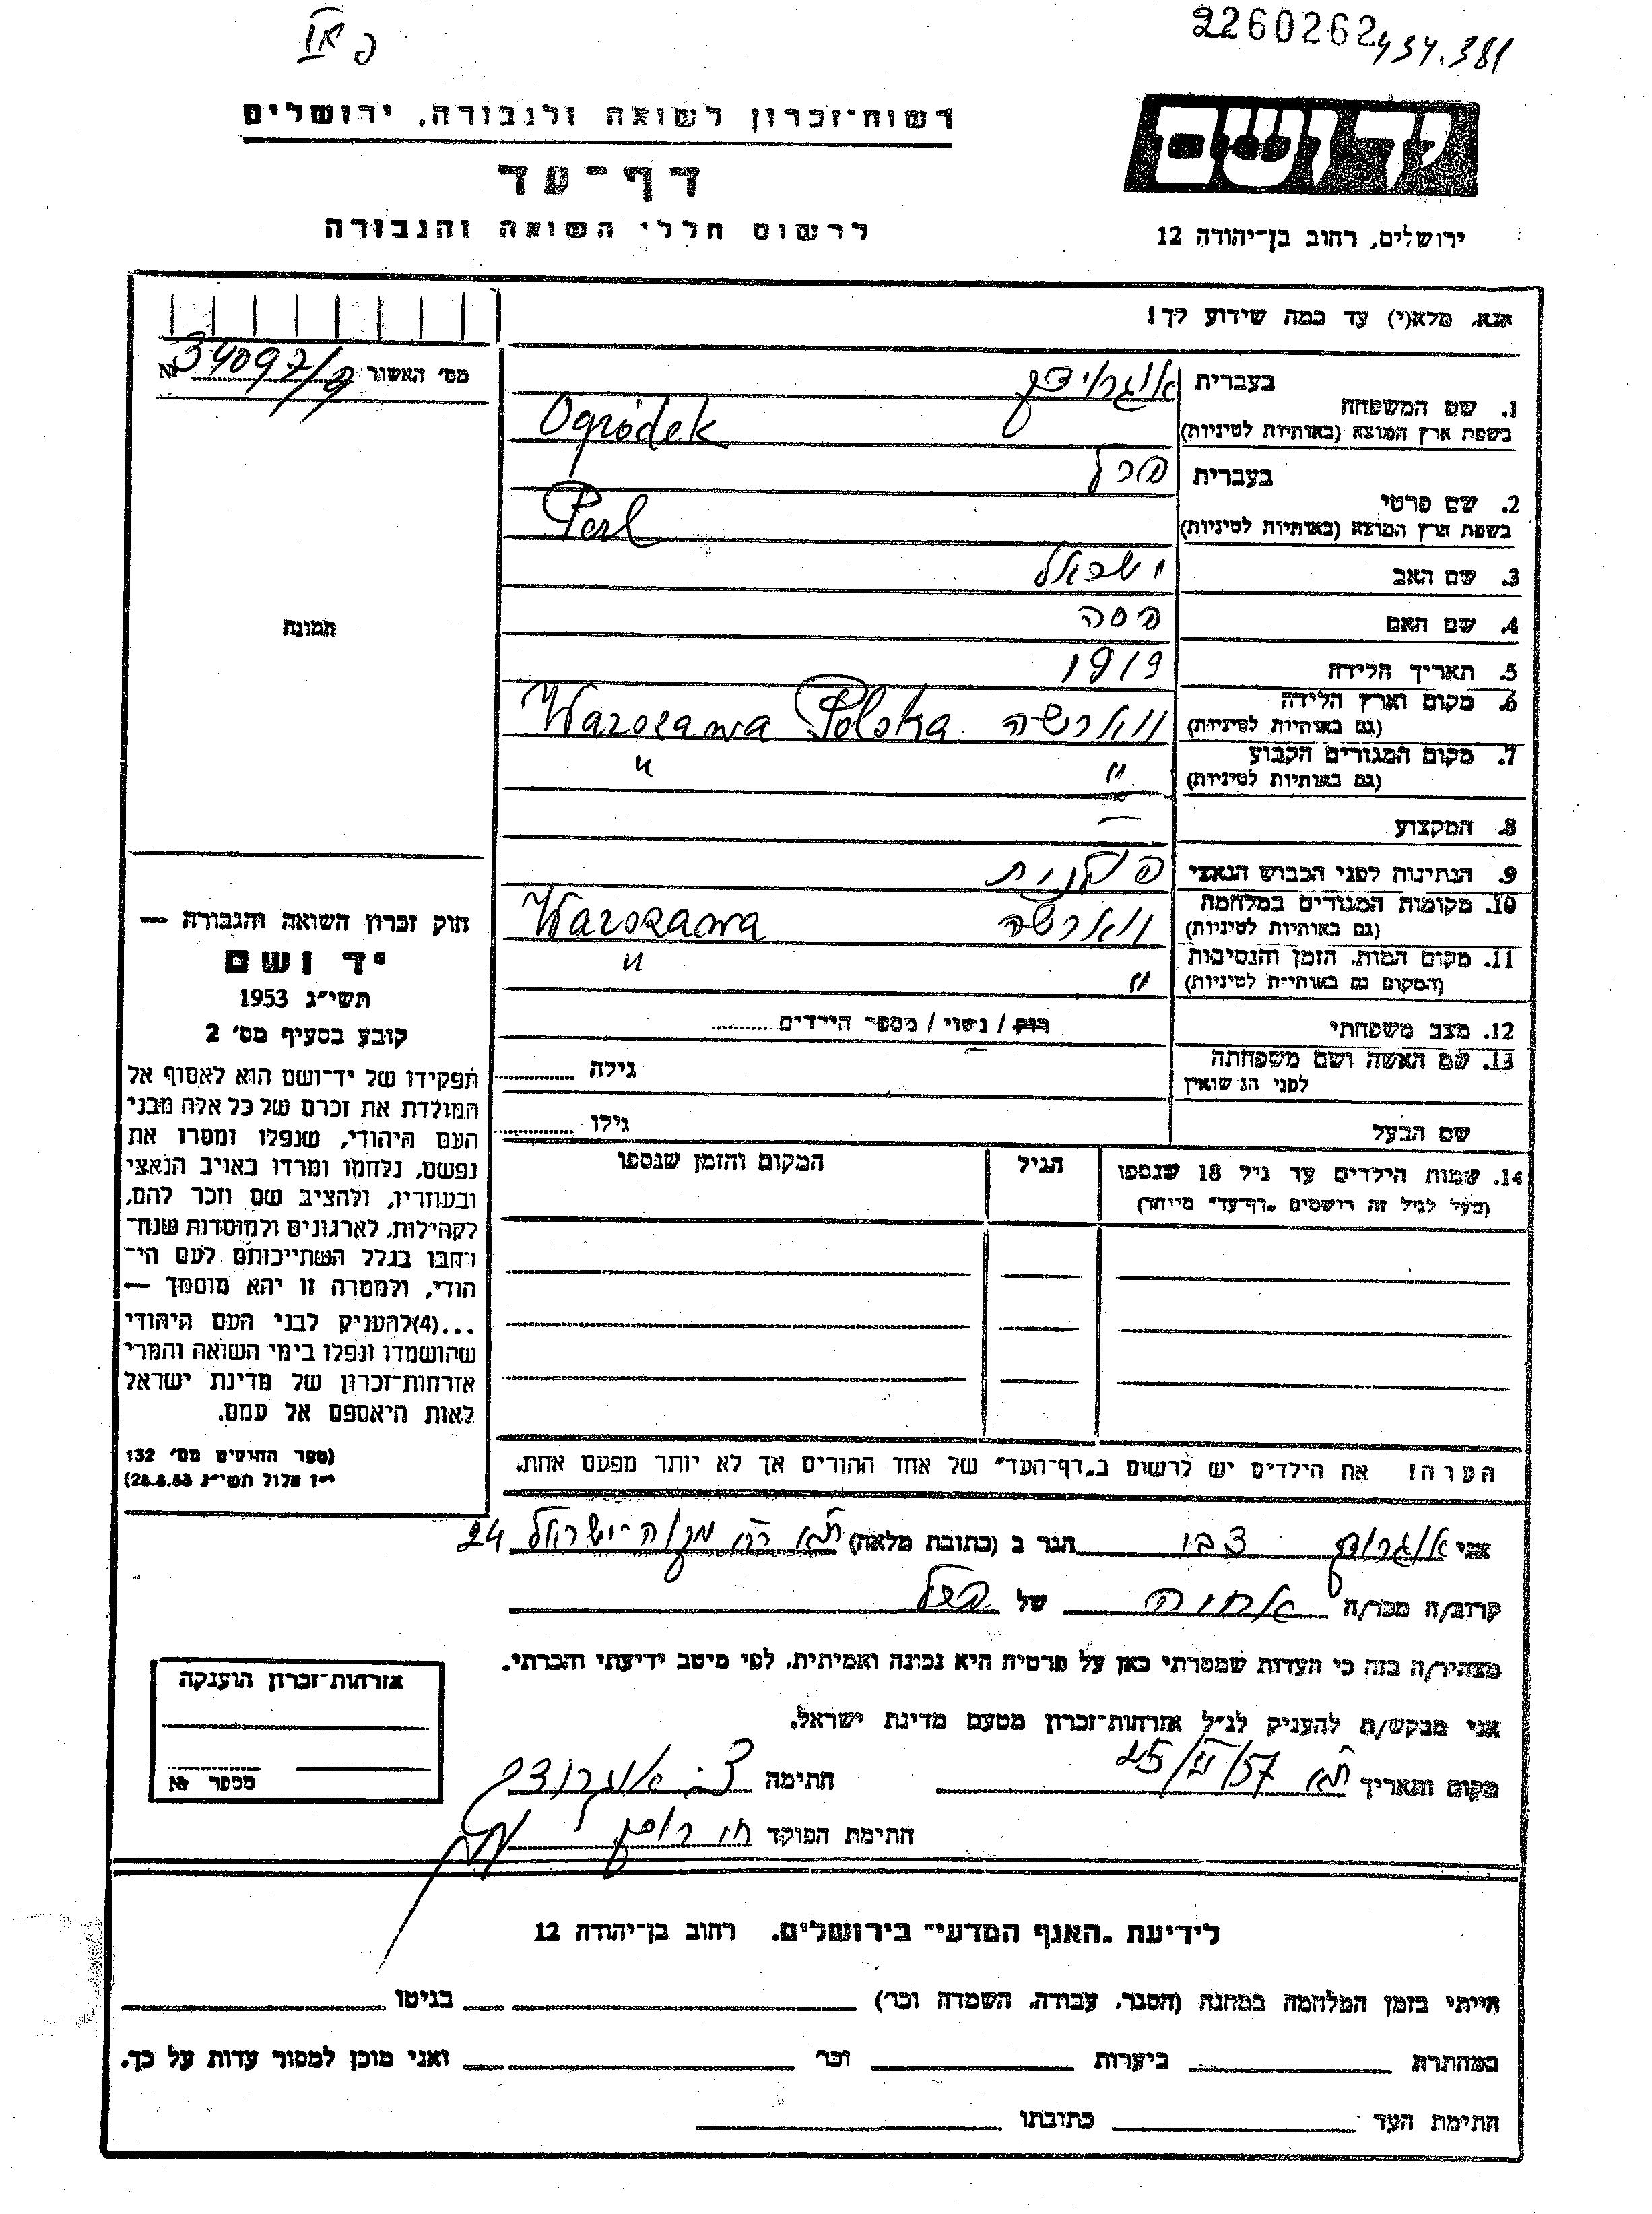 2260262
434.381
רשות־זכרון לשואה ולגבורה, ירושלים
יד ושם
דף־עד
לרשום חללי השואה והגבורה
ירושלים, רחוב בן־יהודה 12
אנא, מלא(י) עד כמה שידוע לך!
מס׳ האשור № 34097/9
1. שם המשפחה
בעברית אוגרודק
בשפת ארץ המוצא (באותיות לטיניות) Ogródek
2. שם פרטי
בעברית פרל
בשפת ארץ המוצא (באותיות לטיניות) Perl
3. שם האב ישראל
4. שם האם פסה
תמונה
5. תאריך הלידה 1919
6. מקום וארץ הלידה
(גם באותיות לטיניות) ווארשה Warszawa Polska
7. מקום המגורים הקבוע
(גם באותיות לטיניות) " "
8. המקצוע —
9. הנתינות לפני הכבוש הנאצי פולנית
10. מקומות המגורים במלחמה
(גם באותיות לטיניות) ווארשה Warszawa
11. מקום המות, הזמן והנסיבות
(המקום גם באותיות לטיניות) " "
12. מצב משפחתי רוק / נשוי / מספר הילדים
13. שם האשה ושם משפחתה
לפני הנישואין
גילה
שם הבעל
גילו
14. שמות הילדים עד גיל 18 שנספו
(מעל לגיל זה רושמים „דף־עד" מיוחד)
הגיל
המקום והזמן שנספו
חוק זכרון השואה והגבורה —
יד ושם
תשי״ג 1953
קובע בסעיף מס׳ 2
תפקידו של יד־ושם הוא לאסוף אל
המולדת את זכרם של כל אלה מבני
העם היהודי, שנפלו ומסרו את
נפשם, נלחמו ומרדו באויב הנאצי
ובעוזריו, ולהציב שם וזכר להם,
לקהילות, לארגונים ולמוסדות שנח־
רבו בגלל השתייכותם לעם הי־
הודי, ולמטרה זו יהא מוסמך —
...(4)להעניק לבני העם היהודי
שהושמדו ונפלו בימי השואה והמרי
אזרחות־זכרון של מדינת ישראל
לאות היאספם אל עמם.
(ספר החוקים מס׳ 132
י״ז אלול תשי״ג 28.8.53)
הערה! את הילדים יש לרשום ב„דף־העד" של אחד ההורים אך לא יותר מפעם אחת.
אני אוגרודק צבי הגר ב (כתובת מלאה) ת״א רח׳ מקוה־ישראל 24
קרוב/ה מכר/ה אחיה של פרל
מצהיר/ה בזה כי העדות שמסרתי כאן על פרטיה היא נכונה ואמיתית, לפי מיטב ידיעתי והכרתי.
אני מבקש/ת להעניק לנ״ל אזרחות־זכרון מטעם מדינת ישראל.
מקום ותאריך ת״א 25/VI/57 חתימה צ. אוגרודק
חתימת הפוקד
אזרחות־זכרון הוענקה
מספר №
לידיעת „האגף המדעי" בירושלים, רחוב בן־יהודה 12
הייתי בזמן המלחמה במחנה (הסגר, עבודה, השמדה וכר׳) בגיטו
במחתרת ביערות וכר׳ ואני מוכן למסור עדות על כך.
חתימת העד כתובתו